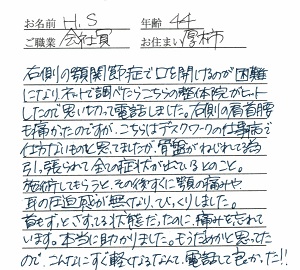 お名前 H.S 年齢 44
ご職業 会社員 お住まい 厚木市
右側の顎関節症で口を開けるのが困難
になり、ネットで調べたらこちらの整体院がヒット
したので思い切って電話しました。右側の肩首腰
も痛かったのですが、こちらはデスクワークの仕事病で
仕方ないものと思ってましたが、骨盤がねじれてる為
引っ張られて全ての症状が出ているとのこと。
施術してもらうと、その後すぐに顎の痛みや
耳の圧迫感が無くなり、びっくりしました。
首もずっとさすってる状態だったのに、痛みも忘れて
います。本当に助かりました。もうだめかと思ってた
ので、こんなにすぐ軽くなるなんて、電話して良かった!!